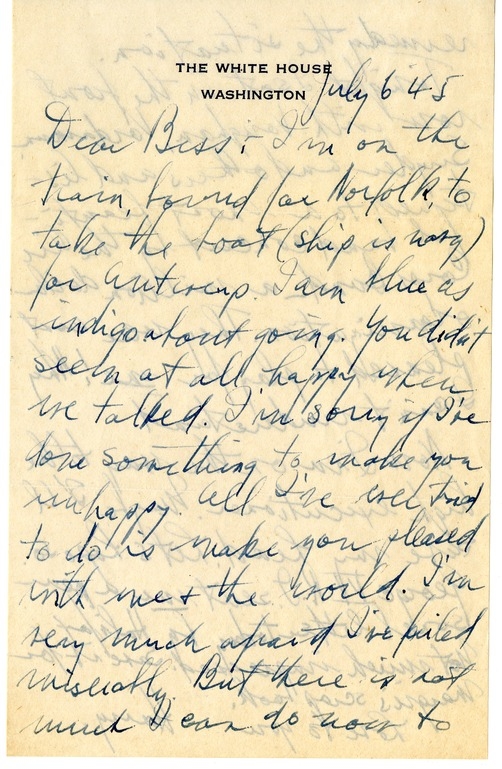 THE WHITE HOUSE
WASHINGTON
July 6 45
Dear Bess:- I'm on the
train, bound for Norfolk, to
take the boat (ship is navy)
for Antwerp. I am blue as
indigo about going. You didn't
seem at all happy when
we talked. I'm sorry if I've
done something to make you
unhappy. All I've ever tried
to do is make you pleased
with me & the world. I'm
very much afraid I've failed
miserably. But there is not
much I can do now to